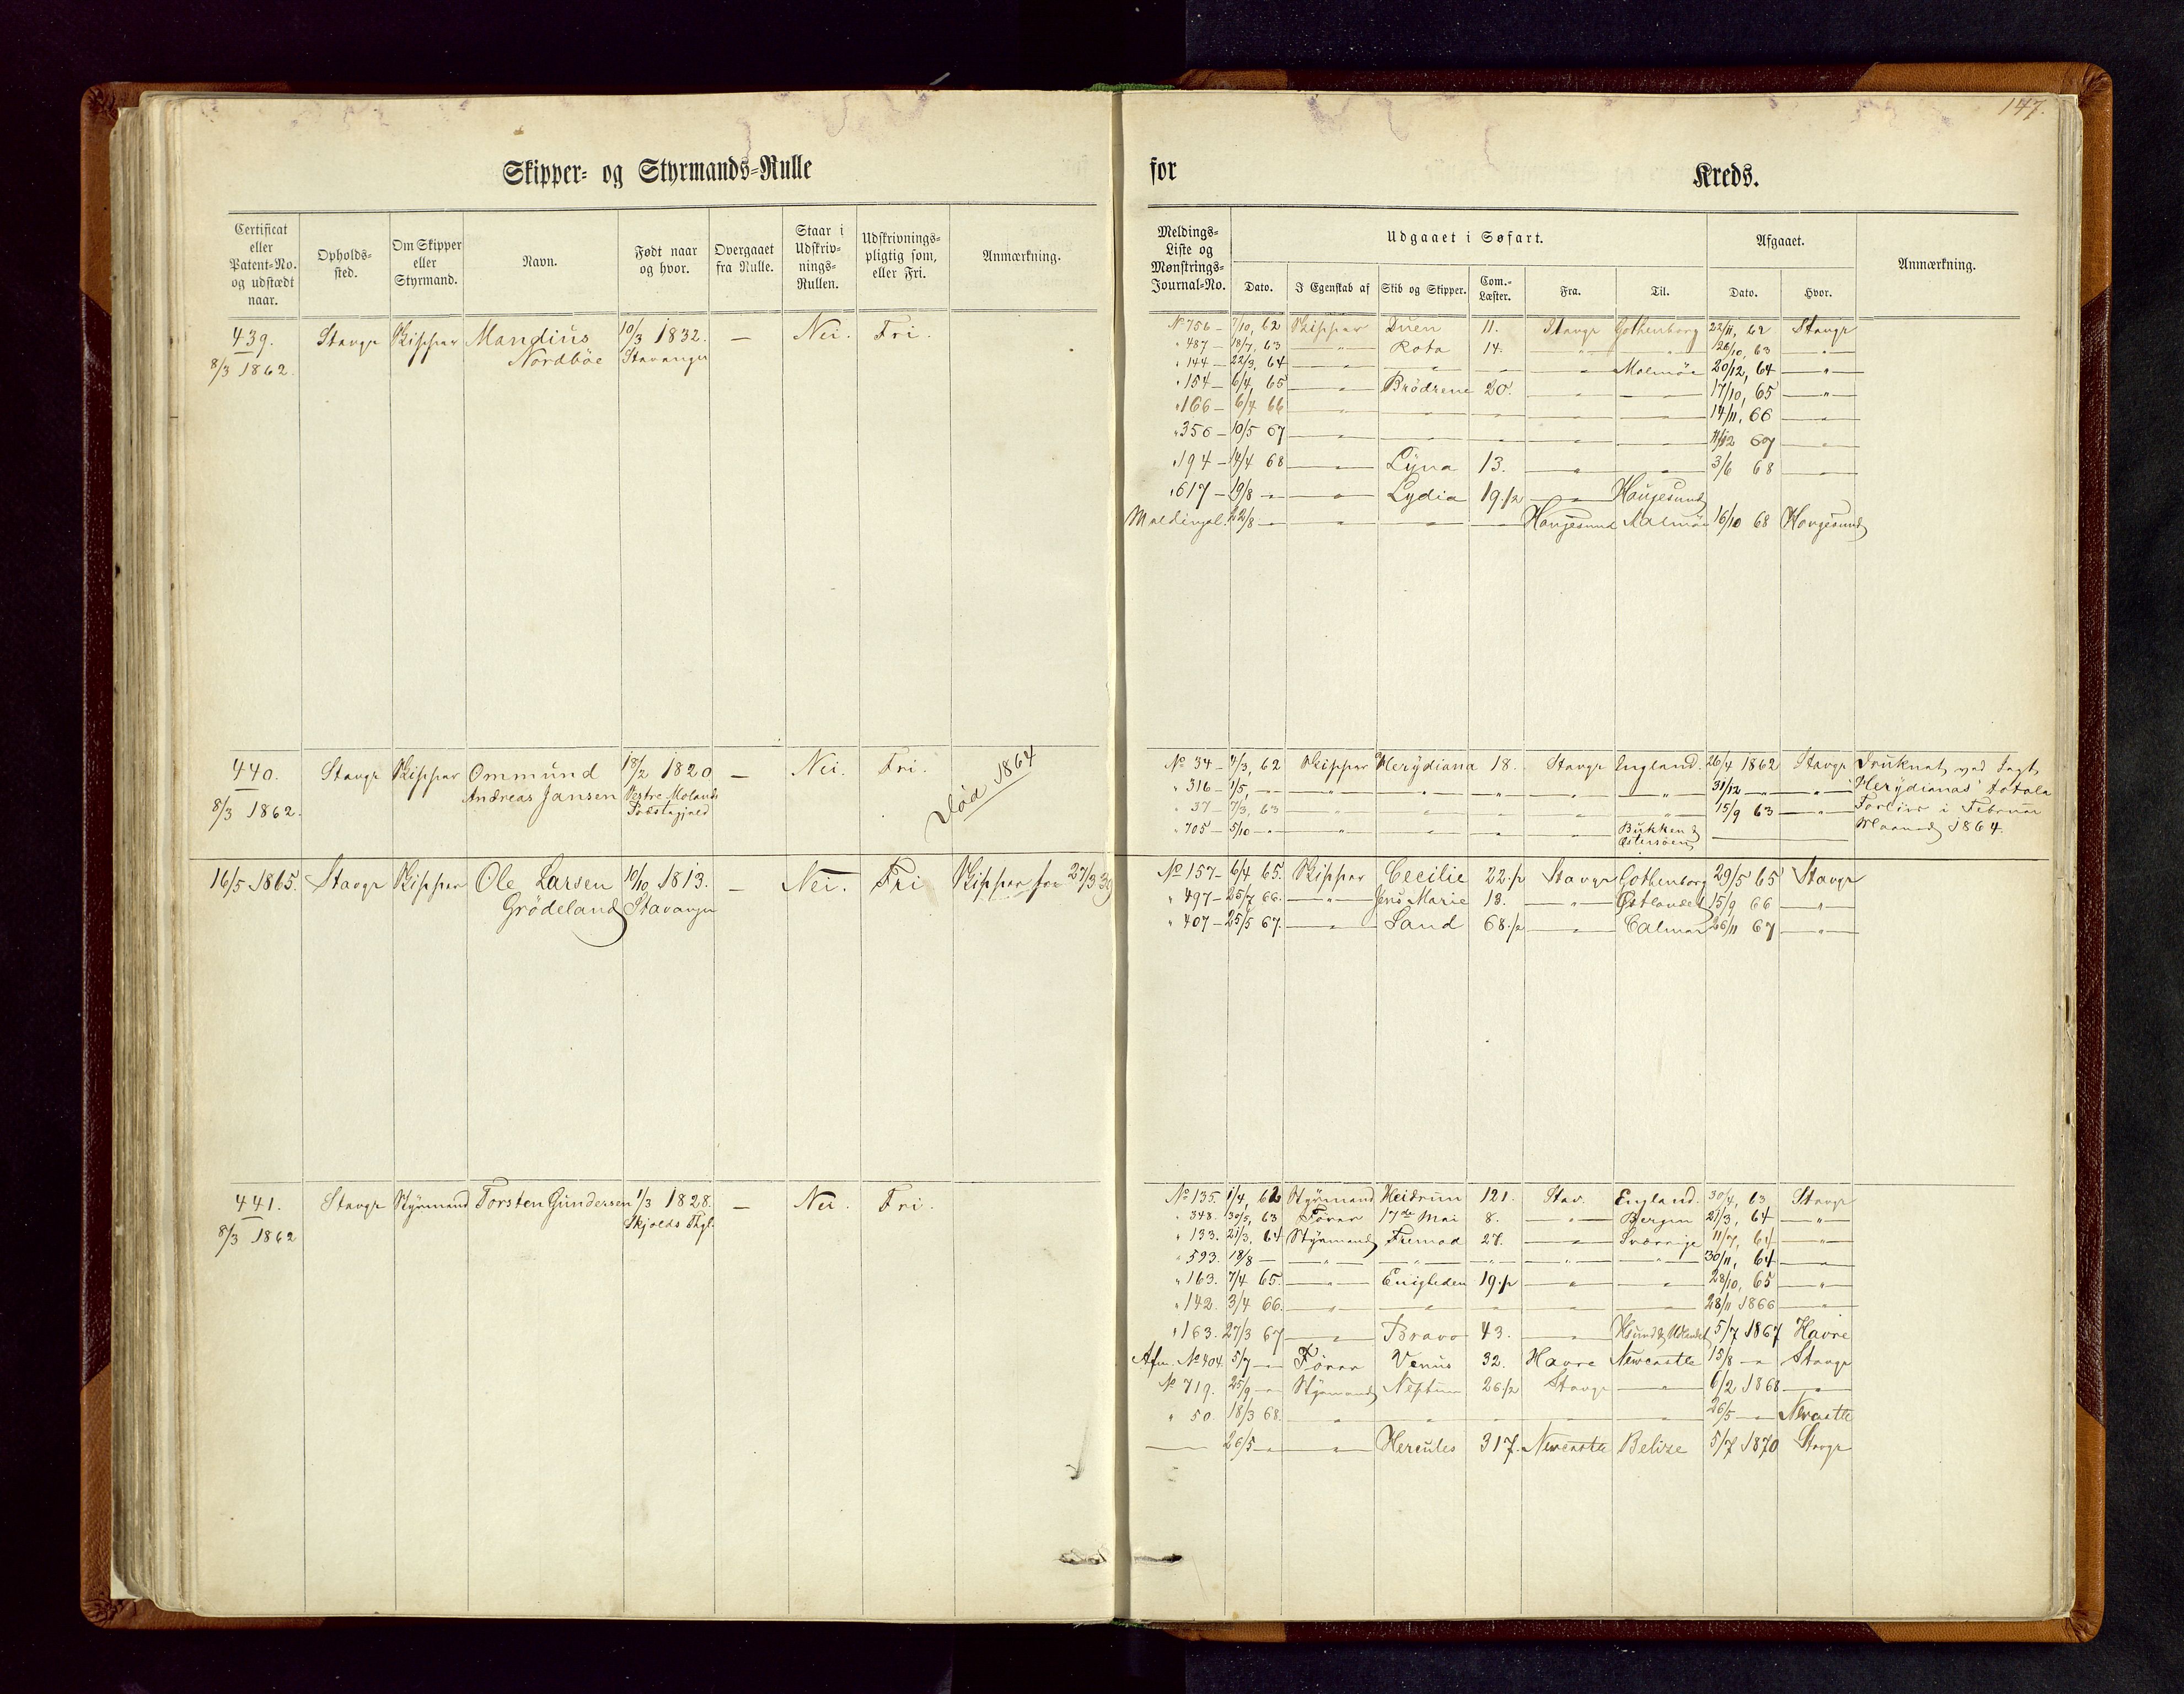 147.
Skipper- og Styrmands-Rulle for Kreds.
Certificat eller Patent-No. og udstædt naar. Opholds-sted. Om Skipper eller Styrmand. Navn. Født naar og hvor. Overgaaet fra Rulle. Staar i Udskriv-nings-Rullen. Udskrivnings-pligtig som, eller Fri. Anmærkning.
Meldings-Liste og Mønstrings-Journal-No. Udgaaet i Søfart. Afgaaet. Anmærkning.
Dato. I Egenskab af Skib og Skipper. Com.-Læster. Fra. Til. Dato. Hvor.
439. Stavgr Skipper Mandius 10/3 1832. — Nei. Fri.
8/3 1862. Nordböe Stavanger
No 756 - 7/10, 62 Skipper Duen 11. Stavgr Gothenborg 22/11, 62 Stavgr
" 487 - 18/7, 63 " Rota 14. " " 26/10, 63 "
" 144 - 22/3, 64 " " " " Malmöe 20/12, 64 "
" 154 - 6/4, 65 " Brödrene 20. " " 17/10, 65 "
" 166 - 6/4 66 " " " " " 14/11, 66 "
" 356 - 10/5 67 " " " " " 11/12 67 "
" 194 - 14/4 68 " Lÿna 13. " " 3/6 68 "
" 617 - 19/8 " " Lydia 19.1/2 " Haugesund
Meldingsl. 22/8 " " " " Haugesund Malmöe 16/10 68 Haugesund
440. Stavgr Skipper Ommund 18/2 1820 — Nei. Fri. Död 1864
8/3 1862. Andreas Jansen Vestre Molands Præstegjeld
No 34 - 7/3, 62 Skipper Merÿdiana 18. Stavgr England. 26/4 1862 Stavgr Druknet ved Jagt
" 316 - 1/5, " " " " " " 31/12 " " Merÿdianas totale
" 37 - 7/3, 63 " " " " " 15/9 63 " Forliis i Februar
" 705 - 5/10 " " " " " Bukken & Østersöen Maaned 1864.
16/5 1865. Stavgr Skipper Ole Larsen 10/10 1813. — Nei. Fri Skipper fra 27/3 39
Grödeland Stavanger
No 157 - 6/4 65. Skipper Cecilie 22.1/2 Stavgr Gothenborg 29/5 65 Stavgr
" 497 - 25/7 66. " Jens Marie 18. " Østlandet 15/9 66 "
" 407 - 25/5 67. " Sand 68.1/2 " Calmar 26/11 67 "
441. Stavgr Styrmand Torsten Gundersen 1/3 1828. — Nei. Fri.
8/3 1862 Skjolds Thgl.
No 135. 1/4, 62 Styrmand Heidrun 121. Stav. England. 30/4, 63 Stavgr
" 348. 30/5, 63 Förer 17de Mai 8. " Bergen 21/3, 64 "
" 133. 21/3, 64 Styrmand Fremad 27. " Sverrige 11/7, 64 "
" 593. 18/8 " " " " " 30/11, 64 "
" 163. 7/4 65. " Enigheden 19.1/2 " " 28/10, 65 "
" 142. 3/4 66. " " " " " 28/11 1866 "
" 163. 27/3 67 " Bravo 43. " Hsund & Udlandet 5/7 1867 Havre
Afm. No 404. 5/7 " Förer Venus 32. Havre Newcastle 15/8 " Stavgr
No 719. 25/9 " Styrmand Neptun 26.1/2 Stavgr " 6/2 1868 "
" 50. 18/3 68. " " " " " 26/5 " Newcastle
— 26/5 " " Hercules 317. Newcastle Belize 5/7 1870 Stavgr